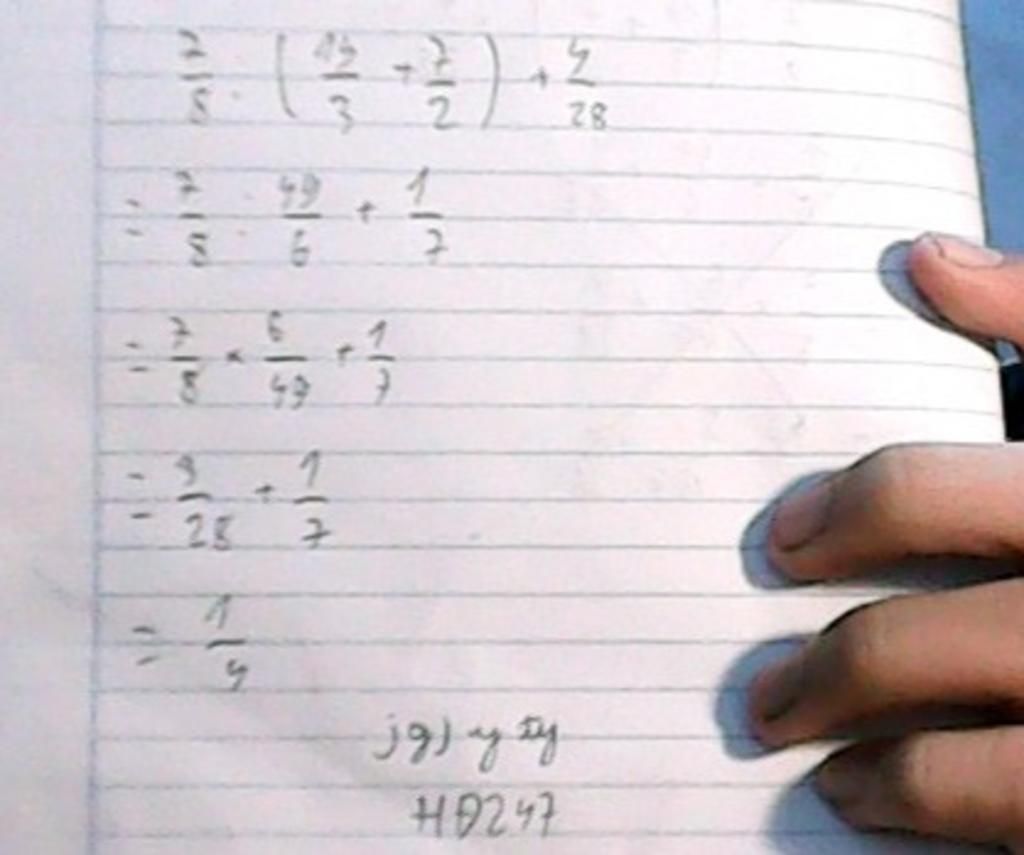 7/8 : (14/3 + 7/2) + 4/28
= 7/8 : 49/6 + 1/7
= 7/8 × 6/49 + 1/7
= 3/28 + 1/7
= 1/4
HD247